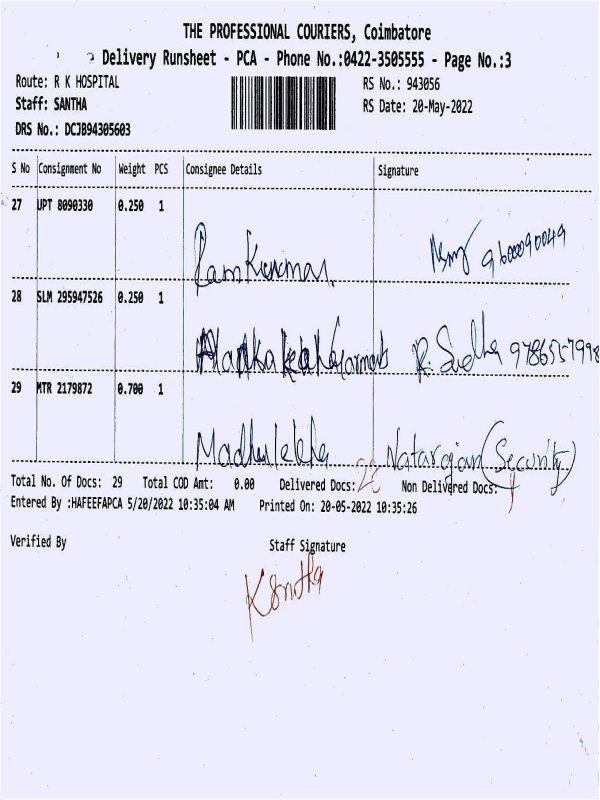 THE PROFESSIONAL COURIERS, Coimbatore
Delivery Runsheet - PCA - Phone No.:0422-3505555 - Page No.:3
Route: R K HOSPITAL RS No.: 943056
Staff: SANTHA RS Date: 20-May-2022
DRS No.: DCJB94305603
S No Consignment No Weight PCS Consignee Details Signature
27 UPT 8090330 0.250 1
Ramkumar. 9600090049
28 SLM 295947526 0.250 1
R. Sudha
29 MTR 2179872 0.700 1
Madhulekha Natarajan (Security)
Total No. Of Docs: 29 Total COD Amt: 0.00 Delivered Docs: Non Delivered Docs:
Entered By :HAFEEFAPCA 5/20/2022 10:35:04 AM Printed On: 20-05-2022 10:35:26
Verified By Staff Signature